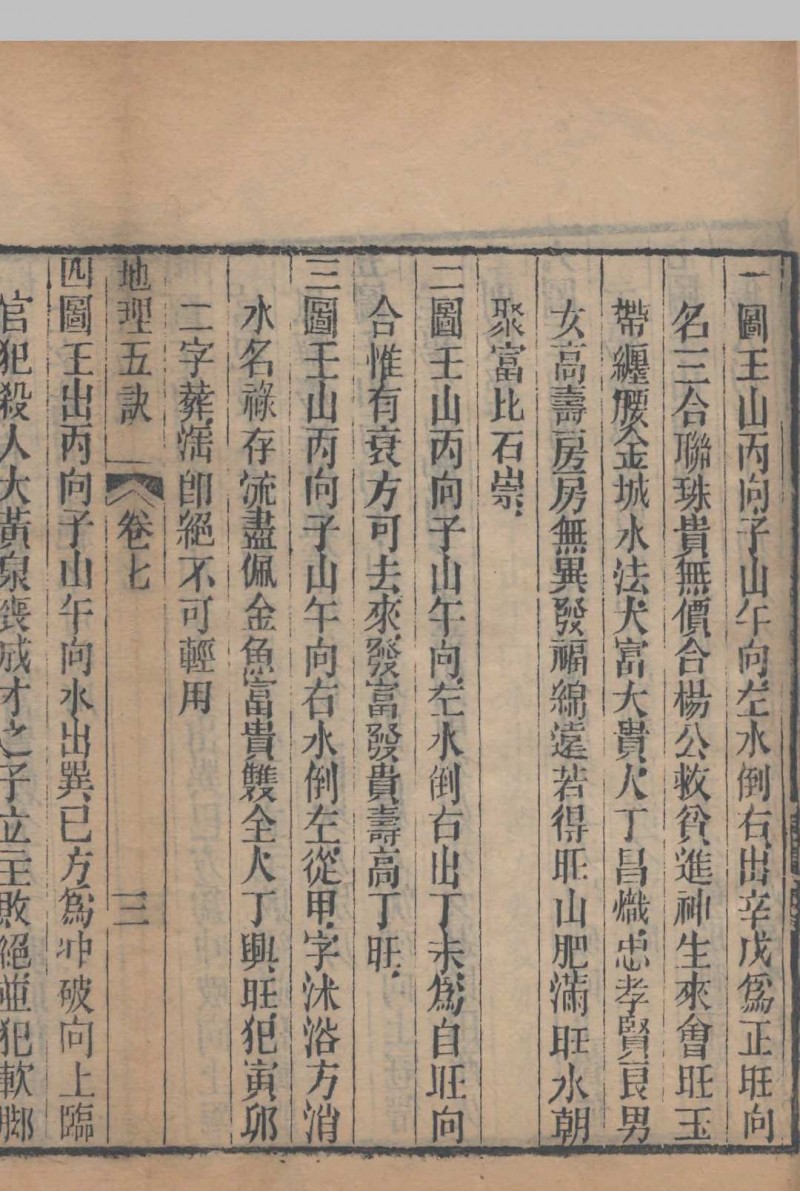 一圖王山丙向子山午向左水倒右出辛戊為正旺向
名三合聯珠貴無價合楊公救貧進神生來會旺玉
帶纏腰金城水法大富大貴人丁昌熾忠孝賢良男
女高壽房房無異發福綿遠若得旺山肥滿旺水朝
聚富比石崇
二圖王山丙向子山午向左水倒右出丁未為自旺向
合惟有衰方可去來發富發貴壽高丁旺
三圖王山丙向子山午向右水倒左從甲字沐浴方消
水名祿存流盡佩金魚富貴雙全人丁興旺犯寅卯
二字葬濡即絕不可輕用
地理五訣 卷七 三
四圖王出丙向子山午向水出巽巳方為冲破向上臨
官犯殺人大黃泉喪成才之子立主敗絕並犯軟脚